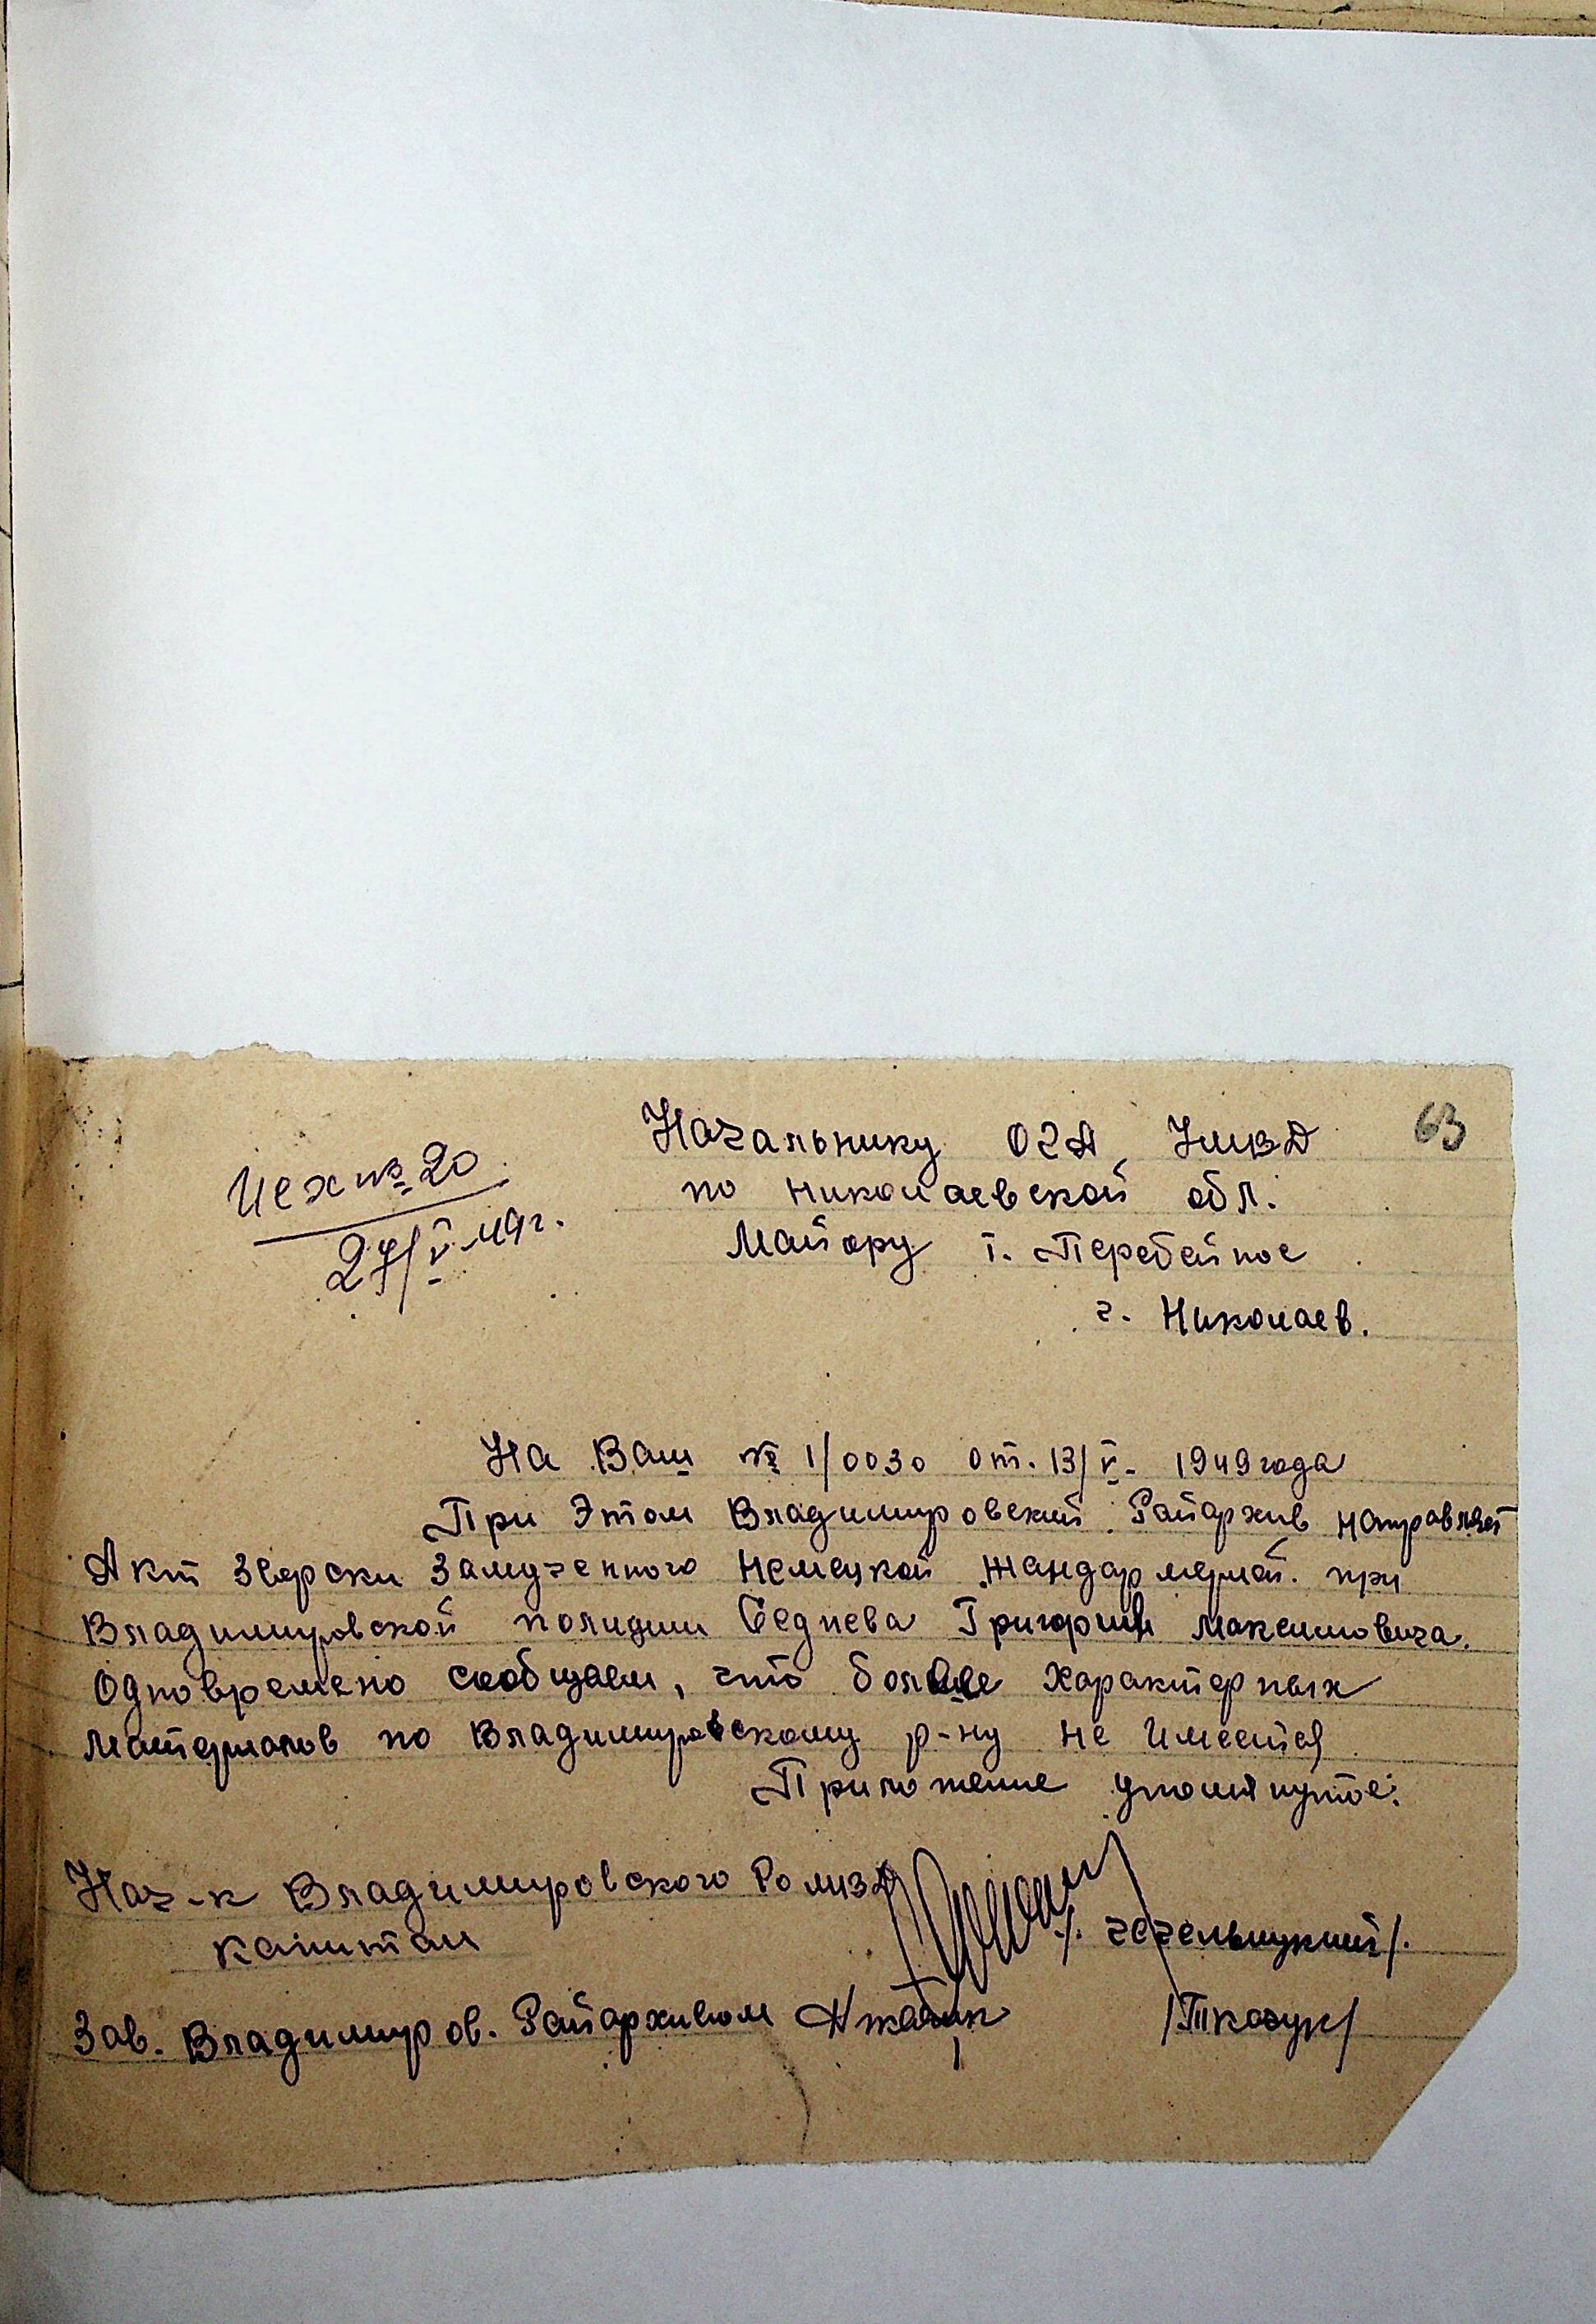 63
Начальнику ОГА УМВД
по николаевской обл.
Майору т. Перебейнос
г. Николаев.
Исх № 20
27/V-49г.
На Ваш № 1/0030 от. 13/V- 1949 года
При Этом Владимировский Райархив направляет
Акт зверски замученного немецкой жандармерией. при
Владимировской полиции Седнева Григория Максимовича.
Одновремено сообщаем, что более характерных
материалов по Владимировскому р-ну не имеется
Приложение упомянутое.
Нач-к Владимировского РоМВД
капитан /. Чечельницкий/.
Зав. Владимиров. Райархивом /Ткачук/